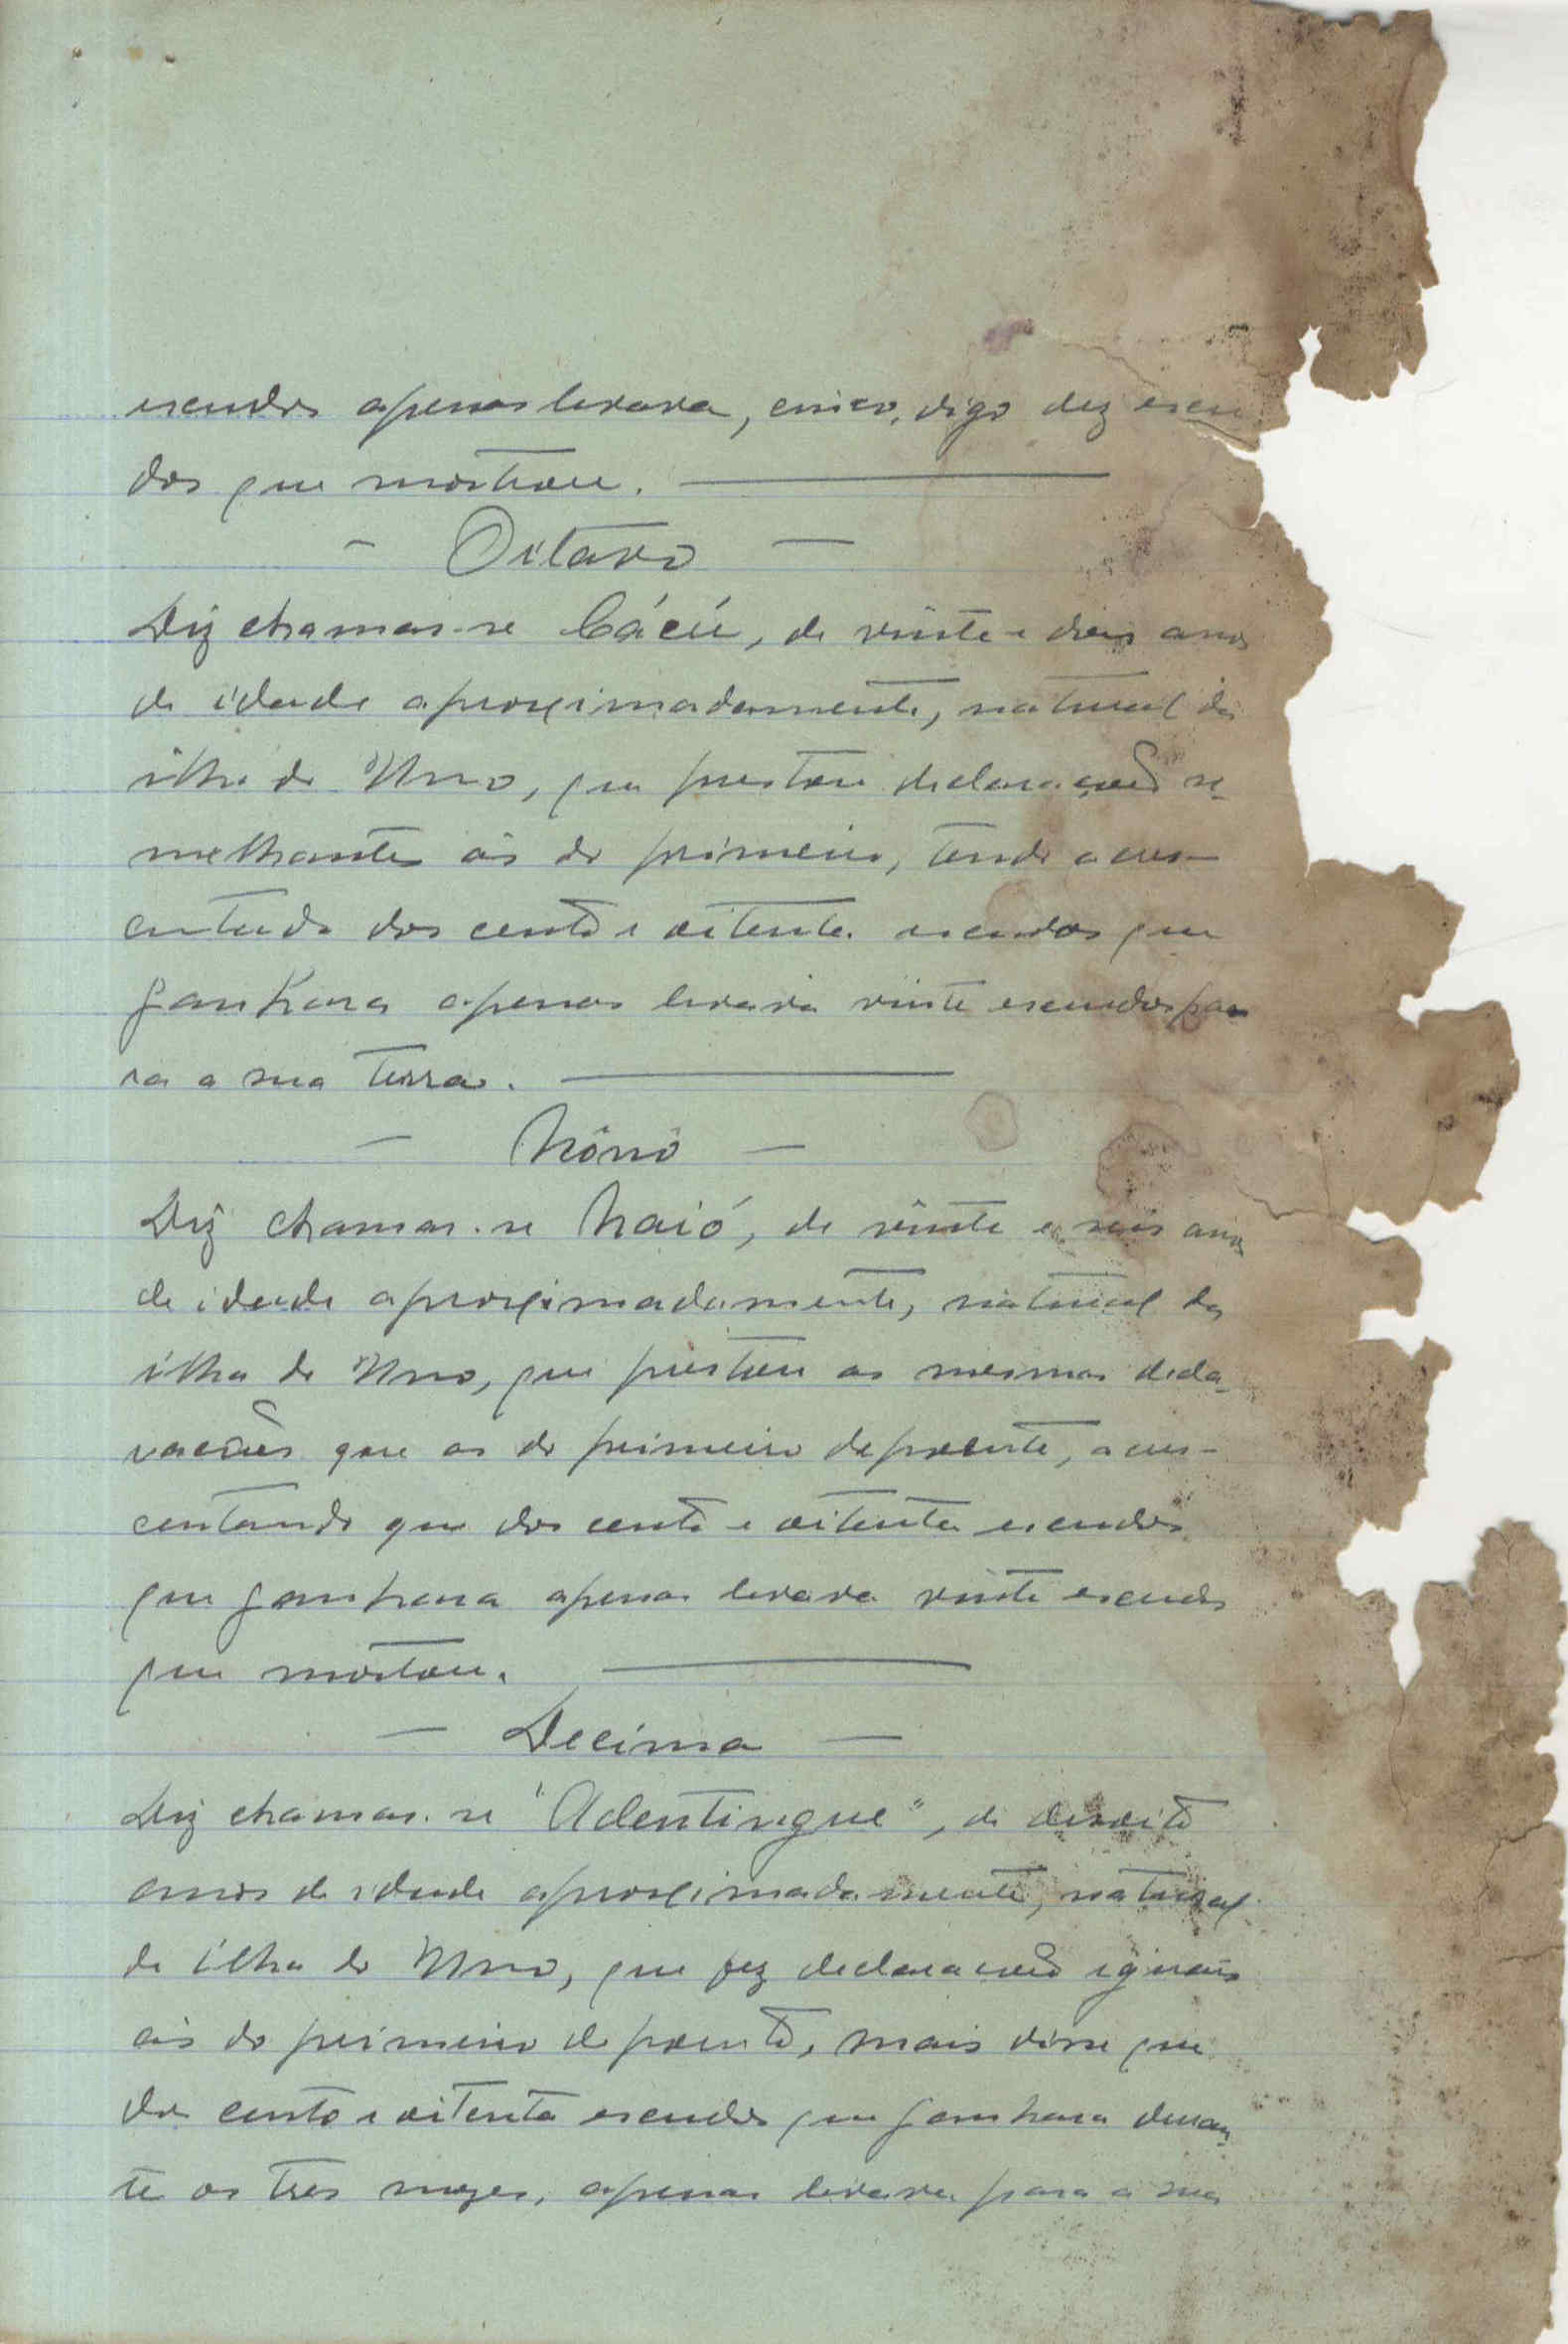 escudos apenas levava, cinco, digo dez escu
dos que mostrou.
- Oitavo -
Diz chamar-se Cácú, de vinte e dois anos
de idade aproximadamente, natural da
ilha de Uno, que prestou declarações se-
melhantes ás do primeiro, tendo acres-
centado dos cento e oitenta escudos que
ganhara apenas levava vinte escudos pa
ra a sua terra.
- Nôno -
Diz chamar-se Naió, de vinte e seis anos
de idade aproximadamente, natural da
ilha de Uno, que prestou as mesmas decla-
rações que as do primeiro depoente, acres-
centando que dos cento e oitenta escudos
que ganhara apenas levava vinte escudos
que mostrou.
- Decima -
Diz chamar-se "Adentingue", de desoito
anos de idade aproximadamente, natural
da ilha de Uno, que fez declarações iguais
ás do primeiro depoente, mais disse que
dos cento e oitenta escudos que ganhara duran-
te os tres mezes, apenas levava para a sua